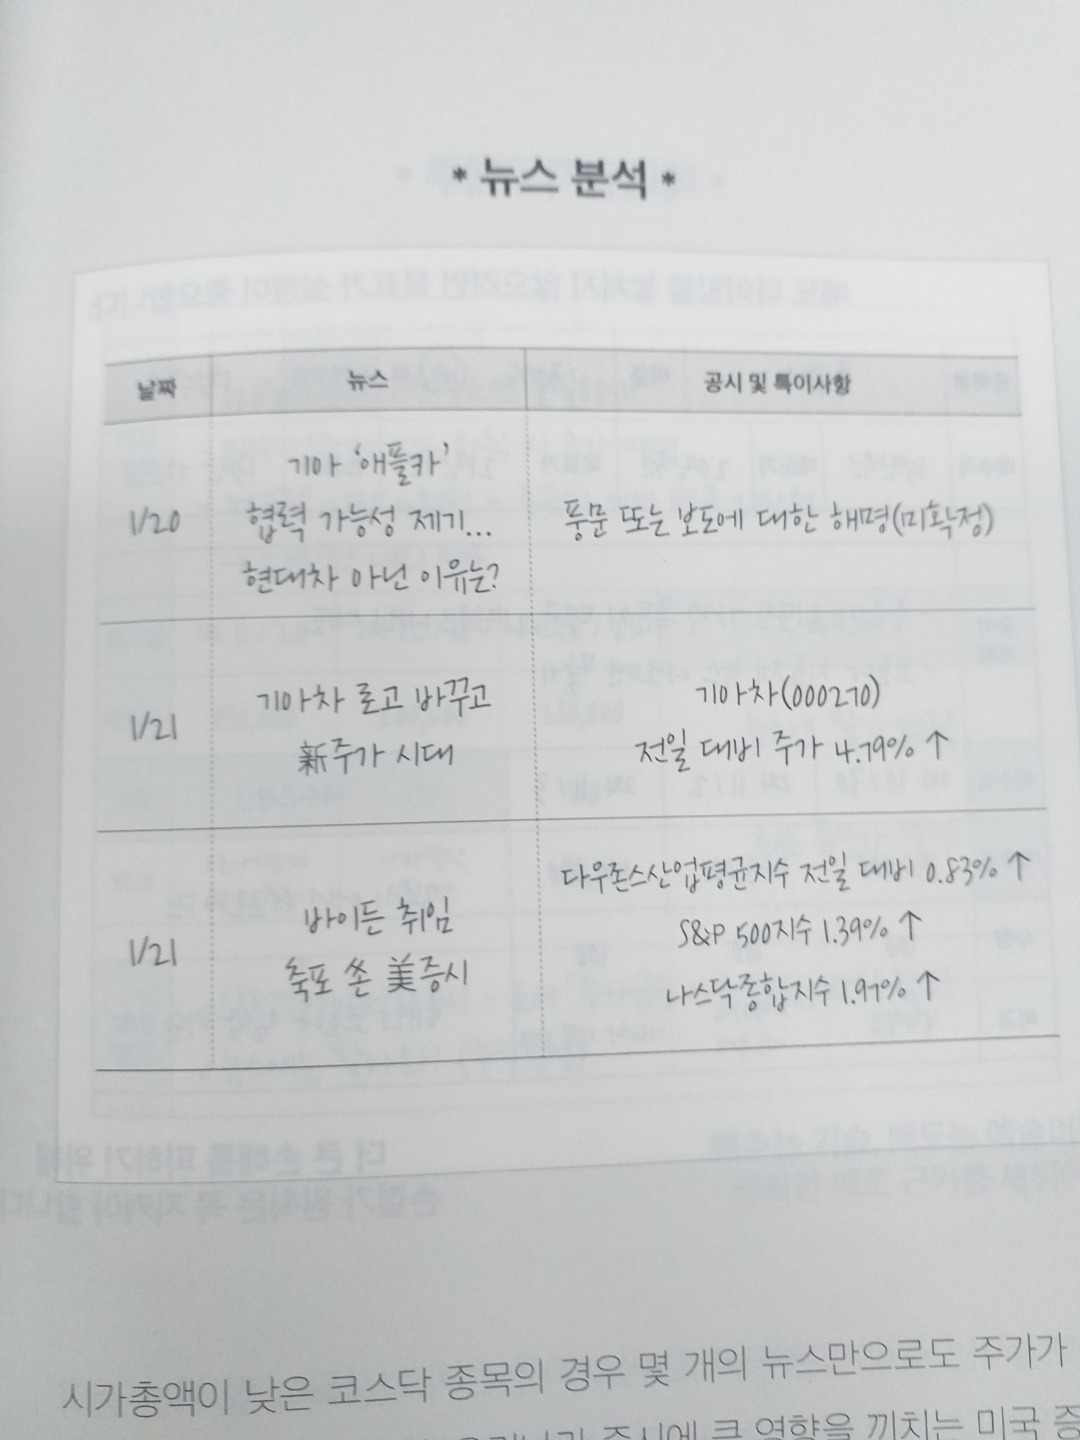 * 뉴스 분석 *
날짜 뉴스 공시 및 특이사항
1/20
기아 '애플카'
협력 가능성 제기...
현대차 아닌 이유는?
풍문 또는 보도에 대한 해명(미확정)
1/21
기아차 로고 바꾸고
新주가 시대
기아차(000270)
전일 대비 주가 4.79% ↑
1/21
바이든 취임
축포 쏜 美증시
다우존스산업평균지수 전일 대비 0.83% ↑
S&P 500지수 1.39% ↑
나스닥종합지수 1.97% ↑
시가총액이 낮은 코스닥 종목의 경우 몇 개의 뉴스만으로도 주가가
증시에 큰 영향을 끼치는 미국 증